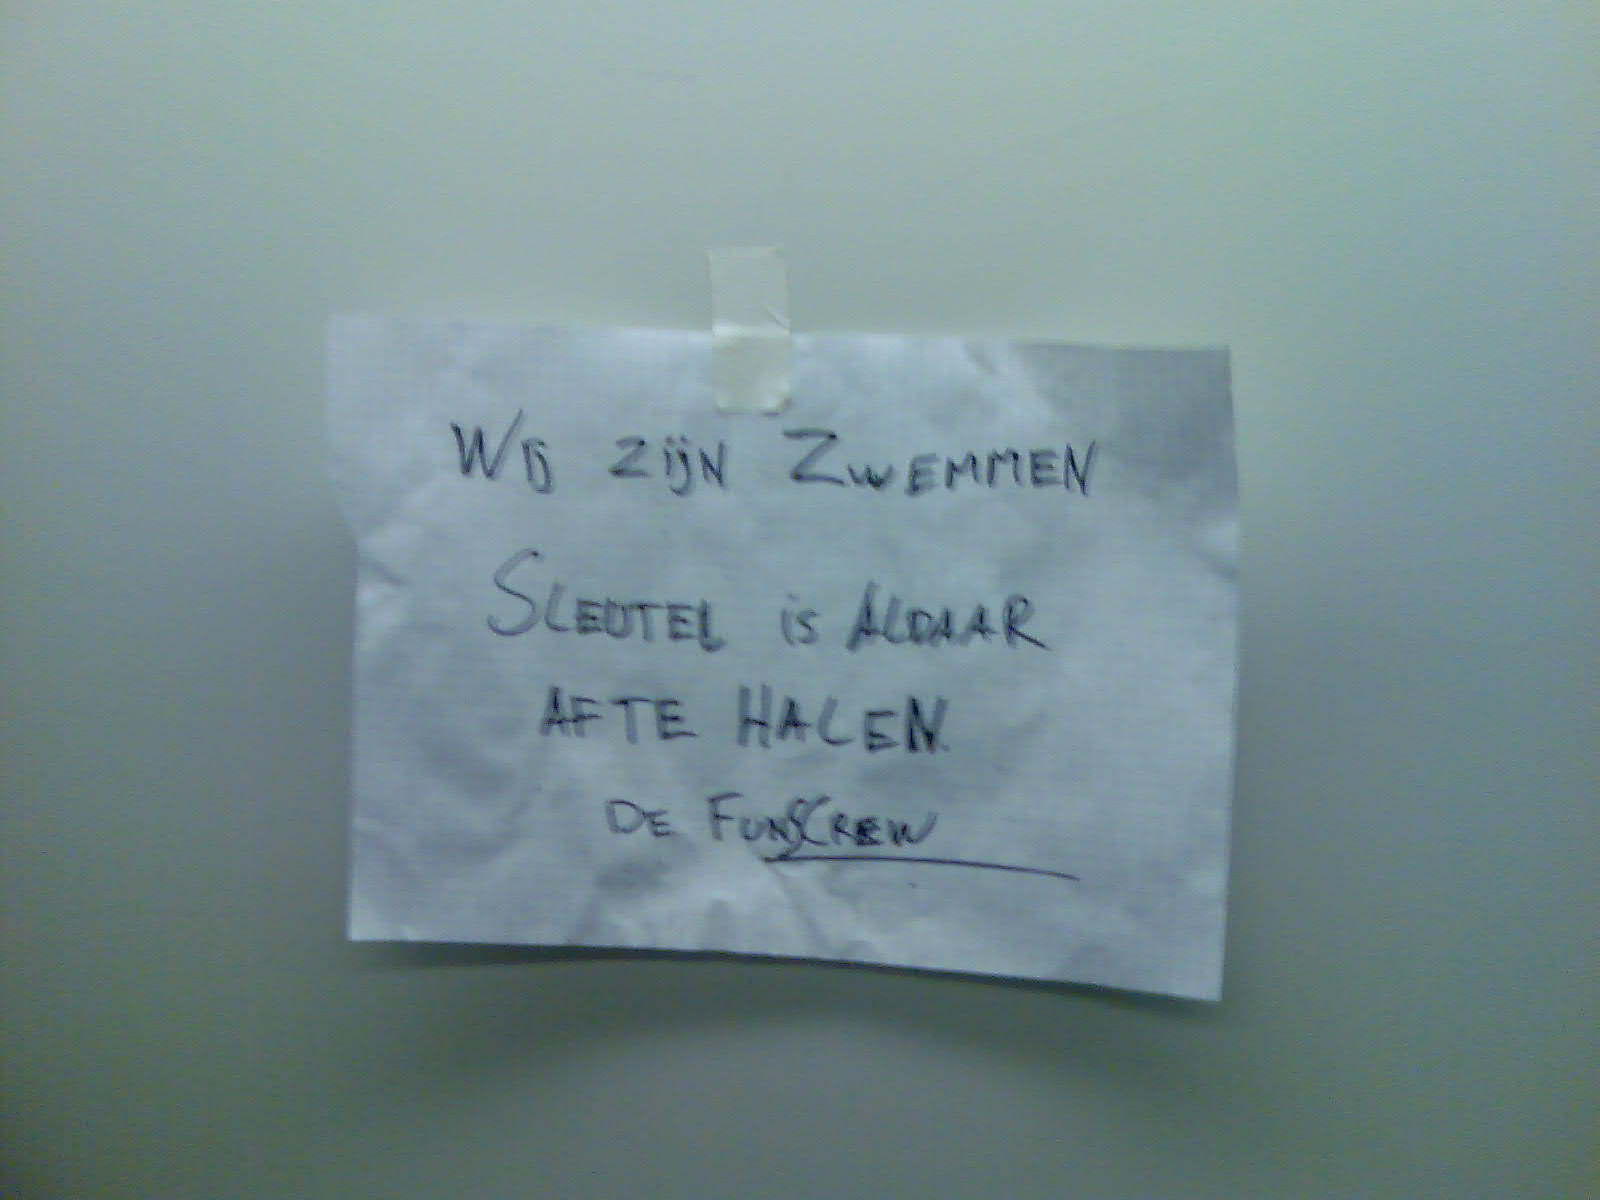 Wij zijn Zwemmen
SLEUTEL is ALDAAR
AF TE HALEN.
DE FUNSCREW